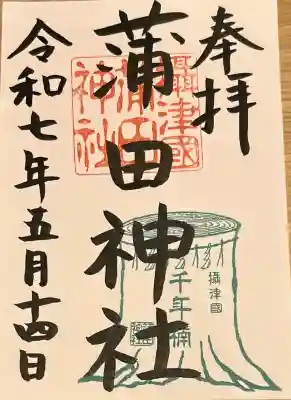 奉拝
攝津國
蒲田
神社
蒲田神社
攝津國
千年楠
令和七年五月十四日